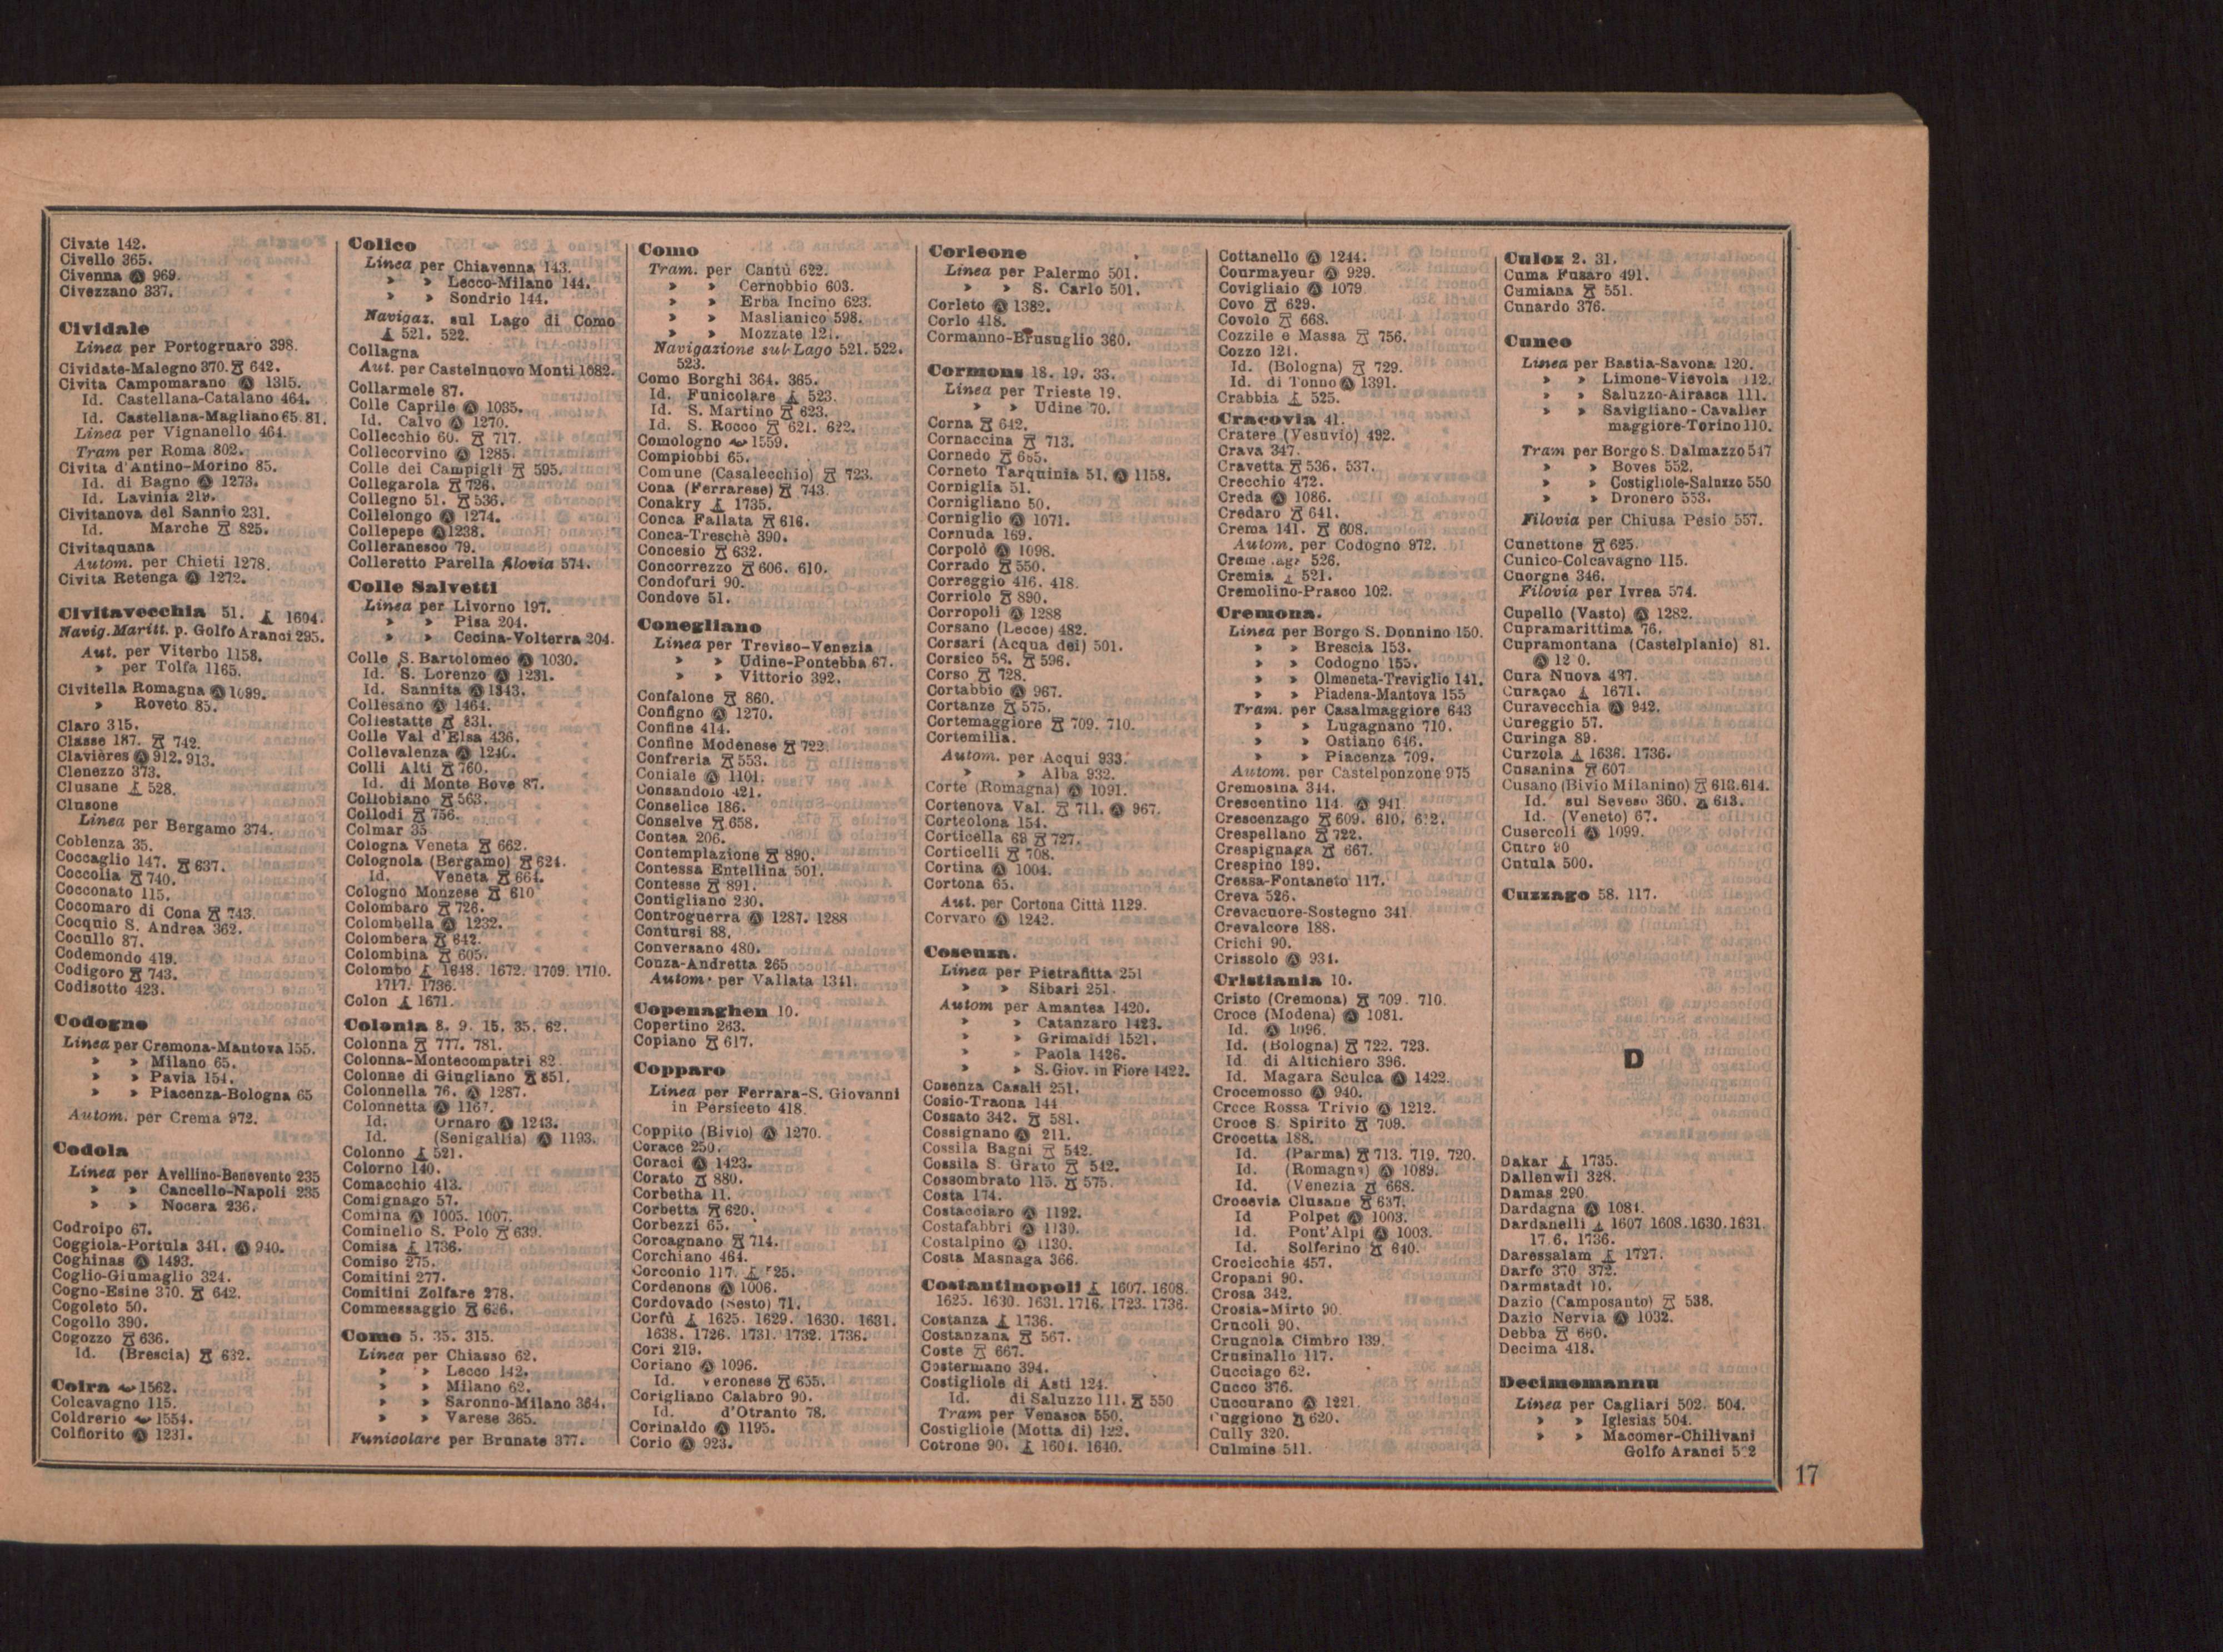 Civate 142.
Civello 365.
Civenna Ⓐ 969.
Civezzano 337.
Cividale
Linea per Portogruaro 398.
Cividate-Malegno 370. 642.
Civita Campomarano Ⓐ 1315.
Id. Castellana-Catalano 464.
Id. Castellana-Magliano 65. 81.
Linea per Vignanello 464.
Tram per Roma 802.
Civita d'Antino-Morino 85.
Id. di Bagno Ⓐ 1273.
Id. Lavinia 219.
Civitanova del Sannio 231.
Id. Marche 825.
Civitaquana
Autom. per Chieti 1278.
Civita Retenga Ⓐ 1272.
Civitavecchia 51. 1604.
Navig. Maritt. p. Golfo Aranci 295.
Aut. per Viterbo 1158.
» per Tolfa 1165.
Civitella Romagna Ⓐ 1099.
» Roveto 85.
Claro 315.
Classe 187. 742.
Clavières Ⓐ 912. 913.
Clenezzo 373.
Clusane 528.
Clusone
Linea per Bergamo 374.
Coblenza 35.
Coccaglio 147. 637.
Coccolia 740.
Cocconato 115.
Cocomaro di Cona 743.
Cocquio S. Andrea 362.
Cocullo 87.
Codemondo 419.
Codigoro 743.
Codisotto 423.
Codogno
Linea per Cremona-Mantova 155.
» » Milano 65.
» » Pavia 154.
» » Piacenza-Bologna 65
Autom. per Crema 972.
Codola
Linea per Avellino-Benevento 235
» » Cancello-Napoli 235
» » Nocera 236.
Codroipo 67.
Coggiola-Portula 341. Ⓐ 940.
Coghinas Ⓐ 1493.
Coglio-Giumaglio 324.
Cogno-Esine 370. 642.
Cogoleto 50.
Cogollo 390.
Cogozzo 636.
Id. (Brescia) 632.
Coira 1562.
Colcavagno 115.
Coldrerio 1554.
Colfiorito Ⓐ 1231.
Colico
Linea per Chiavenna 143.
» » Lecco-Milano 144.
» » Sondrio 144.
Navigaz. sul Lago di Como
521. 522.
Collagna
Aut. per Castelnuovo Monti 1082.
Collarmele 87.
Colle Caprile Ⓐ 1035.
Id. Calvo Ⓐ 1270.
Collecchio 60. 717.
Collecorvino Ⓐ 1285.
Colle dei Campigli 595.
Collegarola 728.
Collegno 51. 536.
Collelongo Ⓐ 1274.
Collepepe Ⓐ 1238.
Colleranesco 79.
Colleretto Parella filovia 574.
Colle Salvetti
Linea per Livorno 197.
» » Pisa 204.
» » Cecina-Volterra 204.
Colle S. Bartolomeo Ⓐ 1030.
Id. S. Lorenzo Ⓐ 1231.
Id. Sannita Ⓐ 1343.
Collesano Ⓐ 1464.
Collestatte 831.
Colle Val d'Elsa 436.
Collevalenza Ⓐ 1240.
Colli Alti 760.
Id. di Monte Bove 87.
Collobiano 563.
Collodi 756.
Colmar 35
Cologna Veneta 662.
Colognola (Bergamo) 624.
Id. Veneta 664.
Cologno Monzese 610
Colombaro 726.
Colombella Ⓐ 1232.
Colombera 642.
Colombina 605.
Colombo 1648. 1672. 1709. 1710.
1717. 1736.
Colon 1671.
Colonia 8. 9. 15. 35. 62.
Colonna 777. 781.
Colonna-Montecompatri 82.
Colonne di Giugliano 851.
Colonnella 76. Ⓐ 1287.
Colonnetta Ⓐ 1167.
Id. Ornaro Ⓐ 1243.
Id. (Senigallia) Ⓐ 1193.
Colonno 521.
Colorno 140.
Comacchio 413.
Comignago 57.
Comina Ⓐ 1005. 1007.
Cominello S. Polo 639.
Comisa 1736.
Comiso 275.
Comitini 277.
Comitini Zolfare 278.
Commessaggio 636.
Como 5. 35. 315.
Linea per Chiasso 62.
» » Lecco 142.
» » Milano 62.
» » Saronno-Milano 364.
» » Varese 365.
Funicolare per Brunate 377.
Como
Tram. per Cantù 622.
» » Cernobbio 603.
» » Erba Incino 623.
» » Maslianico 598.
» » Mozzate 121.
Navigazione sul Lago 521. 522.
523.
Como Borghi 364. 365.
Id. Funicolare 523.
Id. S. Martino 623.
Id. S. Rocco 621. 622.
Comologno 1559.
Compiobbi 65.
Comune (Casalecchio) 723.
Cona (Ferrarese) 743.
Conakry 1735.
Conca Fallata 616.
Conca-Treschè 390.
Concesio 632.
Concorrezzo 606. 610.
Condofuri 90.
Condove 51.
Conegliano
Linea per Treviso-Venezia
» » Udine-Pontebba 67.
» » Vittorio 392.
Confalone 860.
Configno Ⓐ 1270.
Confine 414.
Confine Modenese 722.
Confreria 553.
Coniale Ⓐ 1101.
Consandolo 421.
Conselice 186.
Conselve 658.
Contea 206.
Contemplazione 890.
Contessa Entellina 501.
Contesse 891.
Contigliano 230.
Controguerra Ⓐ 1287. 1288
Contursi 88.
Conversano 480.
Conza-Andretta 265
Autom. per Vallata 1341.
Copenaghen 10.
Copertino 263.
Copiano 617.
Copparo
Linea per Ferrara-S. Giovanni
in Persiceto 418.
Coppito (Bivio) Ⓐ 1270.
Corace 250.
Coraci Ⓐ 1423.
Corato 880.
Corbetha 11.
Corbetta 620.
Corbezzi 65.
Corcagnano 714.
Corchiano 464.
Corconio 117.
Cordenons Ⓐ 1006.
Cordovado (Sesto) 71.
Corfù 1625. 1629. 1630. 1631.
1638. 1726. 1731. 1732. 1736.
Cori 219.
Coriano Ⓐ 1096.
Id. Veronese 655.
Corigliano Calabro 90.
Id. d'Otranto 78.
Corinaldo Ⓐ 1195.
Corio Ⓐ 923.
Corleone
Linea per Palermo 501.
» » S. Carlo 501.
Corleto Ⓐ 1382.
Corlo 418.
Cormanno-Brusuglio 360.
Cormons 18. 19. 33.
Linea per Trieste 19.
» » Udine 70.
Corna 642.
Cornaccina 713.
Cornedo
Corneto Tarquinia 51. Ⓐ 1158.
Corniglia 51.
Cornigliano 50.
Corniglio Ⓐ 1071.
Cornuda 169.
Corpolò Ⓐ 1098.
Corrado 550.
Correggio 416. 418.
Corriolo 890.
Corropoli Ⓐ 1288
Corsano (Lecce) 482.
Corsari (Acqua dei) 501.
Corsico 58. 596.
Corso 728.
Cortabbio Ⓐ 967.
Cortanze 575.
Cortemaggiore 709. 710.
Cortemilia.
Autom. per Acqui 933.
» » Alba 932.
Corte (Romagna) Ⓐ 1091.
Cortenova Val. 711. Ⓐ 967.
Corteolona 154.
Corticella 68 727.
Corticelli 708.
Cortina Ⓐ 1004.
Cortona 65.
Aut. per Cortona Città 1129.
Corvaro Ⓐ 1242.
Cosenza.
Linea per Pietrafitta 251
» » Sibari 251.
Autom per Amantea 1420.
» » Catanzaro 1423.
» » Grimaldi 1521.
» » Paola 1426.
» » S. Giov. in Fiore 1422.
Cosenza Casali 251.
Cosio-Traona 144
Cossato 342. 581.
Cossignano Ⓐ 211.
Cossila Bagni 542.
Cossila S. Grato 542.
Cossombrato 115. 575.
Costa 174.
Costacciaro Ⓐ 1192.
Costafabbri Ⓐ 1130.
Costalpino Ⓐ 1130.
Costa Masnaga 366.
Costantinopoli 1607. 1608.
1625. 1630. 1631. 1716. 1723. 1736.
Costanza 1736.
Costanzana 567.
Coste 667.
Costermano 394.
Costigliole di Asti 124.
Id. di Saluzzo 111. 550
Tram per Venasca 550.
Costigliole (Motta di) 122.
Cotrone 90. 1604. 1640.
Cottanello Ⓐ 1244.
Courmayeur Ⓐ 929.
Covigliaio Ⓐ 1079
Covo 629.
Covolo 668.
Cozzile e Massa 756.
Cozzo 121.
Id. (Bologna) 729.
Id. di Tonno Ⓐ 1391.
Crabbia 525.
Cracovia 41.
Cratere (Vesuvio) 492.
Crava 347.
Cravetta 536. 537.
Crecchio 472.
Creda Ⓐ 1086.
Credaro 641.
Crema 141. 608.
Autom. per Codogno 972.
Creme 526.
Cremia 521.
Cremolino-Prasco 102.
Cremona.
Linea per Borgo S. Donnino 150.
» » Brescia 153.
» » Codogno 155.
» » Olmeneta-Treviglio 141.
» » Piadena-Mantova 155
Tram. per Casalmaggiore 643
» » Lugagnano 710.
» » Ostiano 646.
» » Piacenza 709.
Autom. per Castelponzone 975
Cremosina 344.
Crescentino 114. Ⓐ 941
Crescenzago 609. 610. 612.
Crespellano 722.
Crespignaga 667.
Crespino 199.
Cressa-Fontaneto 117.
Creva 526.
Crevacuore-Sostegno 341.
Crevalcore 188.
Crichi 90.
Crissolo Ⓐ 934.
Cristiania 10.
Cristo (Cremona) 709. 710.
Croce (Modena) Ⓐ 1081.
Id. Ⓐ 1096.
Id. (Bologna) 722. 723.
Id di Altichiero 396.
Id. Magara Sculca Ⓐ 1422.
Crocemosso Ⓐ 940.
Croce Rossa Trivio Ⓐ 1212.
Croce S. Spirito 709.
Crocetta 188.
Id. (Parma) 713. 719. 720.
Id. (Romagna) Ⓐ 1089.
Id. (Venezia 668.
Crocevia Clusane 637.
Id Polpet Ⓐ 1003.
Id. Pont'Alpi Ⓐ 1003.
Id. Solferino 640.
Crocicchie 457.
Cropani 90.
Crosa 342.
Crosia-Mirto 90.
Crucoli 90.
Crugnola Cimbro 139.
Crusinallo 117.
Cucciago 62.
Cucco 376.
Cuccurano Ⓐ 1221.
Cuggiono 620.
Cully 320.
Culmine 511.
Culoz 2. 31.
Cuma Fusaro 491.
Cumiana 551.
Cunardo 376.
Cuneo
Linea per Bastia-Savona 120.
» » Limone-Vievola 112.
» » Saluzzo-Airasca 111.
» » Savigliano-Cavaller
maggiore-Torino 110.
Tram per Borgo S. Dalmazzo 547
» » Boves 552.
» » Costigliole-Saluzzo 550
» » Dronero 553.
Filovia per Chiusa Pesio 557.
Cunettone 625.
Cunico-Colcavagno 115.
Cuorgne 346.
Filovia per Ivrea 574.
Cupello (Vasto) Ⓐ 1282.
Cupramarittima 76.
Cupramontana (Castelplanio) 81.
Ⓐ
Cura Nuova 437.
Curaçao 1671.
Curavecchia Ⓐ 942.
Cureggio 57.
Curinga 89.
Curzola 1636. 1736.
Cusanina 607
Cusano (Bivio Milanino) 613. 614.
Id. sul Seveso 360. 613.
Id. (Veneto) 67.
Cusercoli Ⓐ 1099.
Cutro 90
Cutula 500.
Cuzzago 58. 117.
D
Dakar 1735.
Dallenwil 328.
Damas 290.
Dardagna Ⓐ 1081.
Dardanelli 1607 1608. 1630. 1631.
1736.
Daressalam 1727.
Darfo 370 372.
Darmstadt 10.
Dazio (Camposanto) 538.
Dazio Nervia Ⓐ 1032.
Debba 660.
Decima 418.
Decimomannu
Linea per Cagliari 502. 504.
» » Iglesias 504.
» » Macomer-Chilivani
Golfo Aranci
17